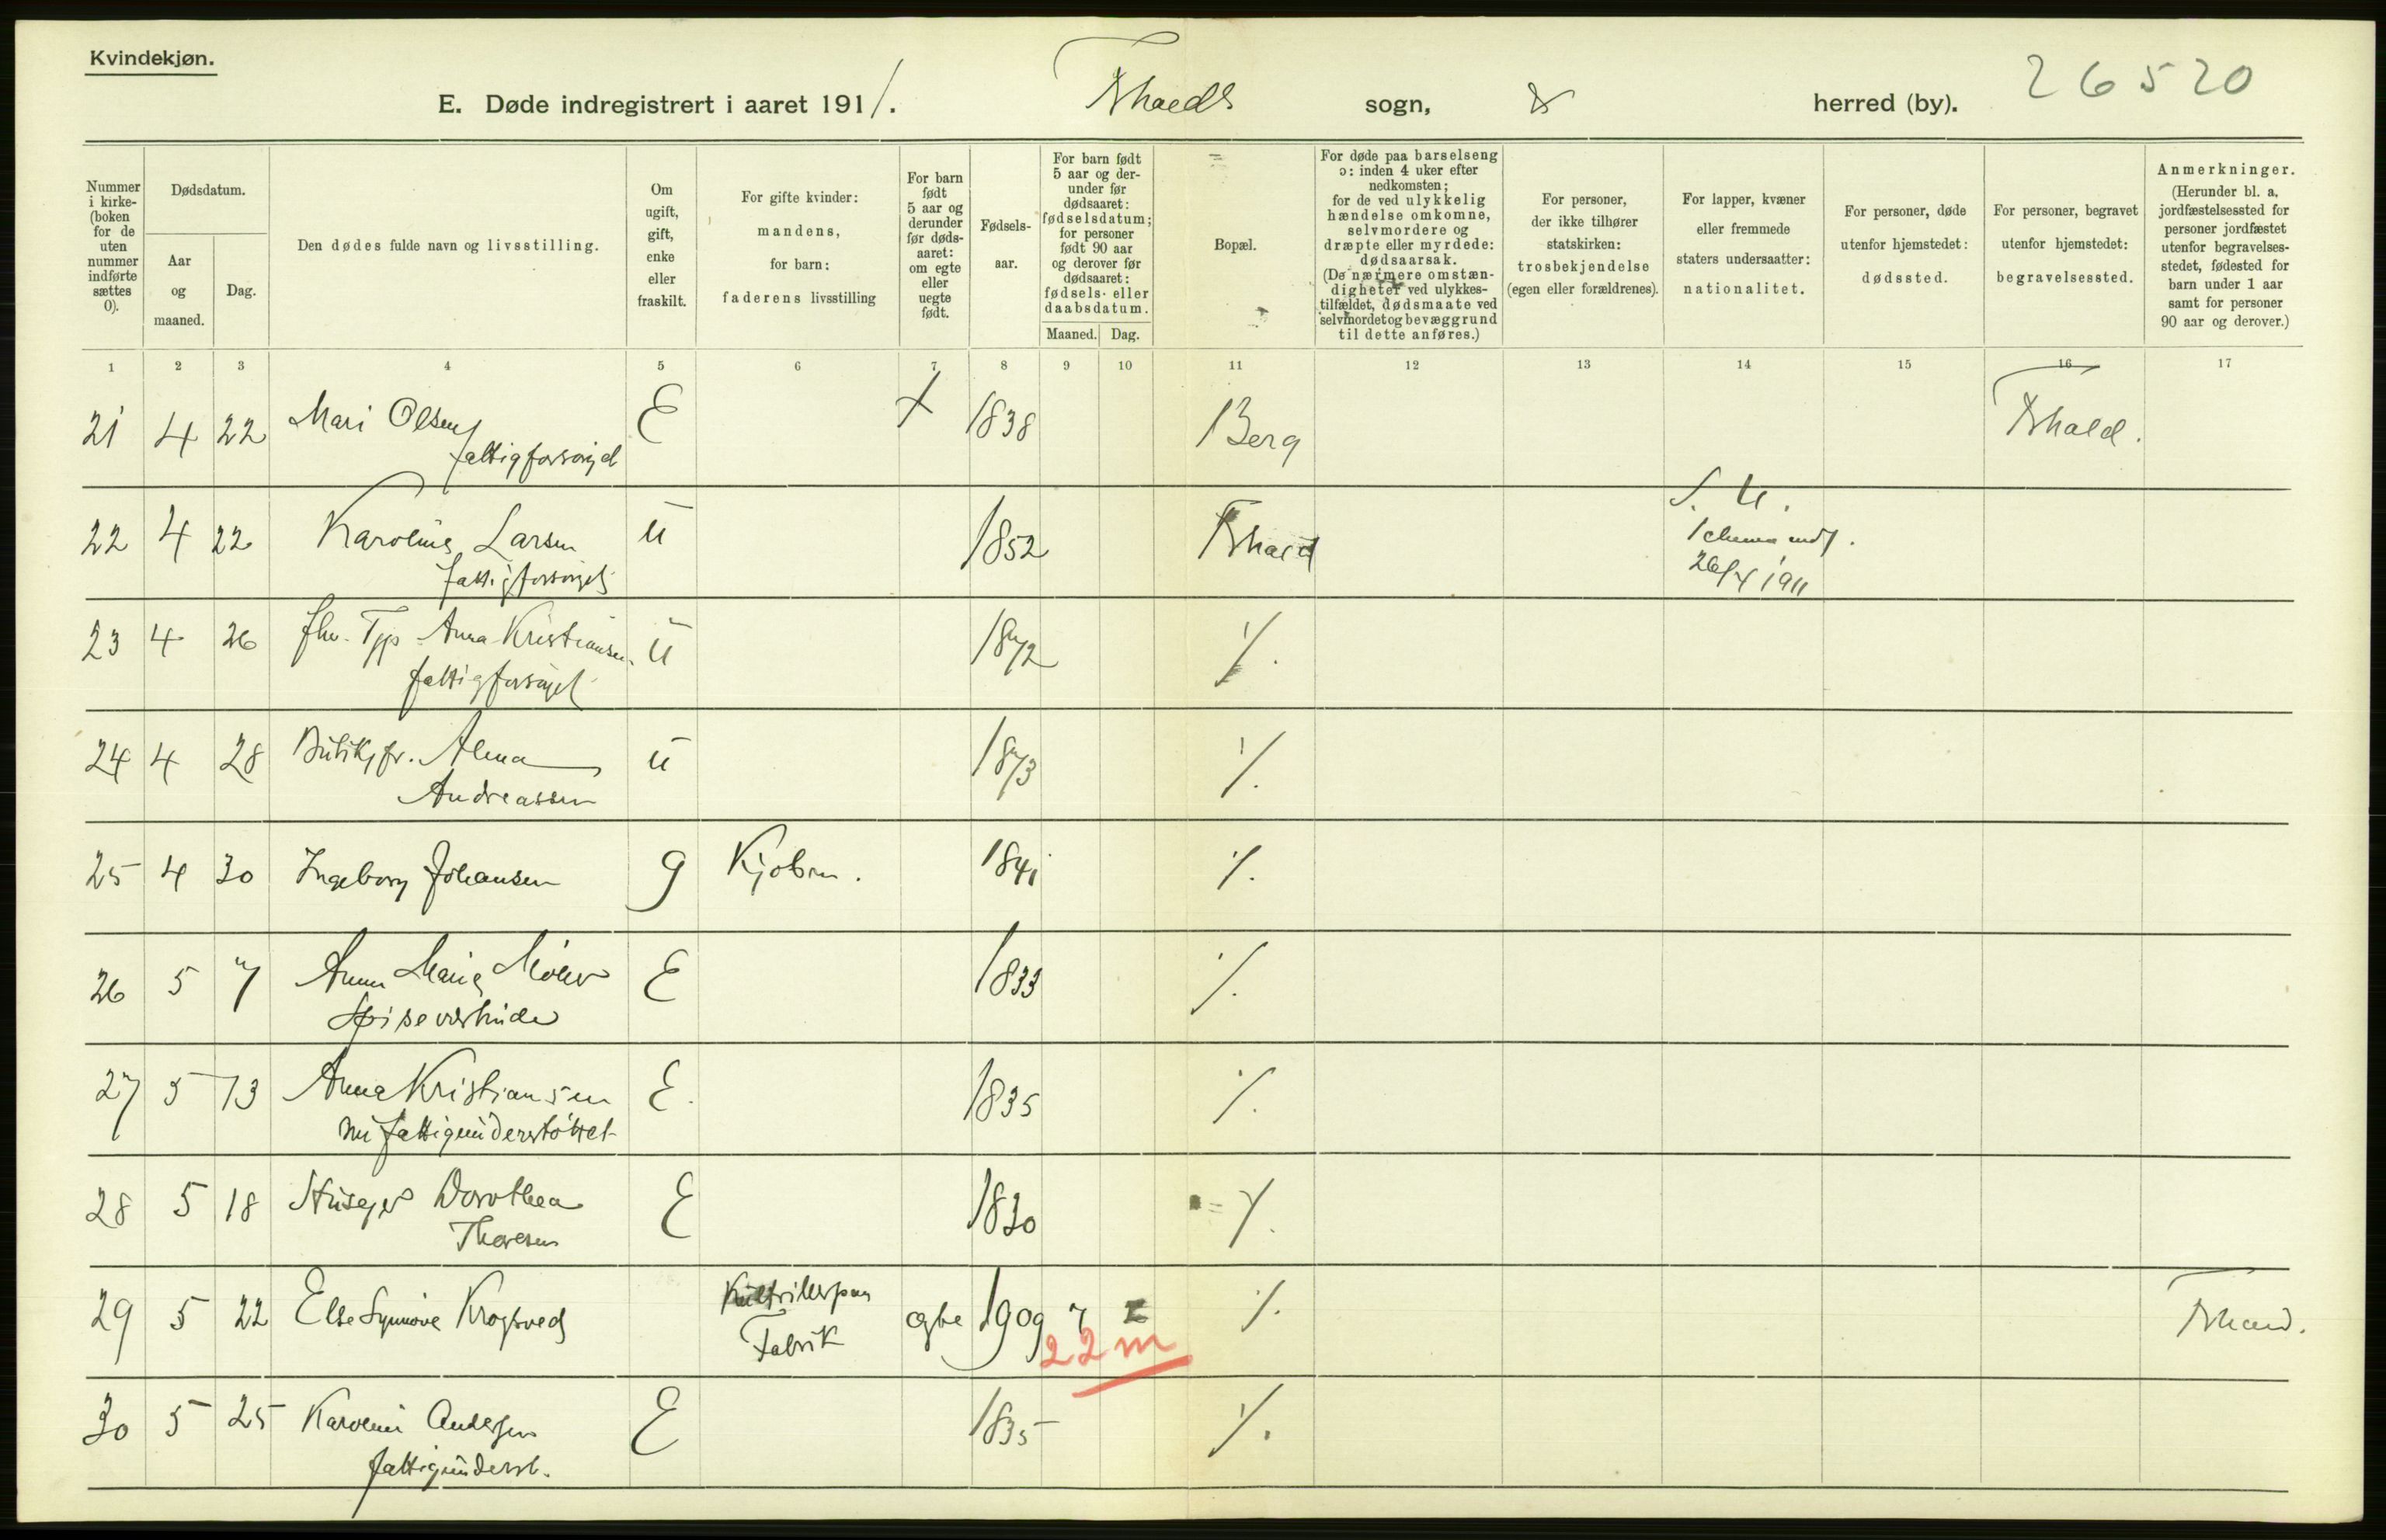 Kvindekjøn.
E. Døde indregistrert i aaret 1911. Fhalds sogn, & herred (by). 26520
Nummer i kirke-(boken for de uten nummer indførte sættes 0).
Dødsdatum.
Aar og maaned.
Dag.
Den dødes fulde navn og livsstilling.
Om ugift, gift, enke eller fraskilt.
For gifte kvinder: mandens, for barn: faderens livsstilling
For barn født 5 aar og derunder før døds-aaret: om egte eller uegte født.
Fødsels-aar.
For barn født 5 aar og der-under før dødsaaret: fødselsdatum; for personer født 90 aar og derover før dødsaaret: fødsels- eller daabsdatum.
Maaned. Dag.
Bopæl.
For døde paa barselseng ɔ: inden 4 uker efter nedkomsten; for de ved ulykkelig hændelse omkomne, selvmordere og dræpte eller myrdede: dødsaarsak. (De nærmere omstæn-digheter ved ulykkes-tilfældet, dødsmaate ved selvmordet og bevæggrund til dette anføres.)
For personer, der ikke tilhører statskirken: trosbekjendelse (egen eller forældrenes).
For lapper, kvæner eller fremmede staters undersaatter: nationalitet.
For personer, døde utenfor hjemstedet: dødssted.
For personer, begravet utenfor hjemstedet: begravelsessted.
Anmerkninger. (Herunder bl. a. jordfæstelsessted for personer jordfæstet utenfor begravelses-stedet, fødested for barn under 1 aar samt for personer 90 aar og derover.)
1 2 3 4 5 6 7 8 9 10 11 12 13 14 15 16 17
21 4 22 Mari Olsen E 1838 Berg Fhald.
fattigforsørget
22 4 22 Karoline Larsen u 1852 Fhald S. U.
fattigforsørget
26/4 1911
23 4 26 fhv. Tjp Anna Kristiansen u 1872 ٪.
fattigforsørget
24 4 28 Butikjfr. Alma u 1873 ٪.
Andreassen
25 4 30 Ingeborg Johansen g Kjøbm. 1841 ٪.
26 5 7 Anna Marie Møller E 1833 ٪.
Spiseværtinde
27 5 13 Anna Kristiansen E. 1835 ٪.
nu fattigunderstøttet
28 5 18 Husejer Dorothea E 1830 = ٪.
Thoresen
29 5 22 Else Synnøve Krogsveds Fabrik egte 1909 7 ٪. Fhald.
22 m
30 5 25 Karoline Andersen E 1835 ٪.
fattigunderst.